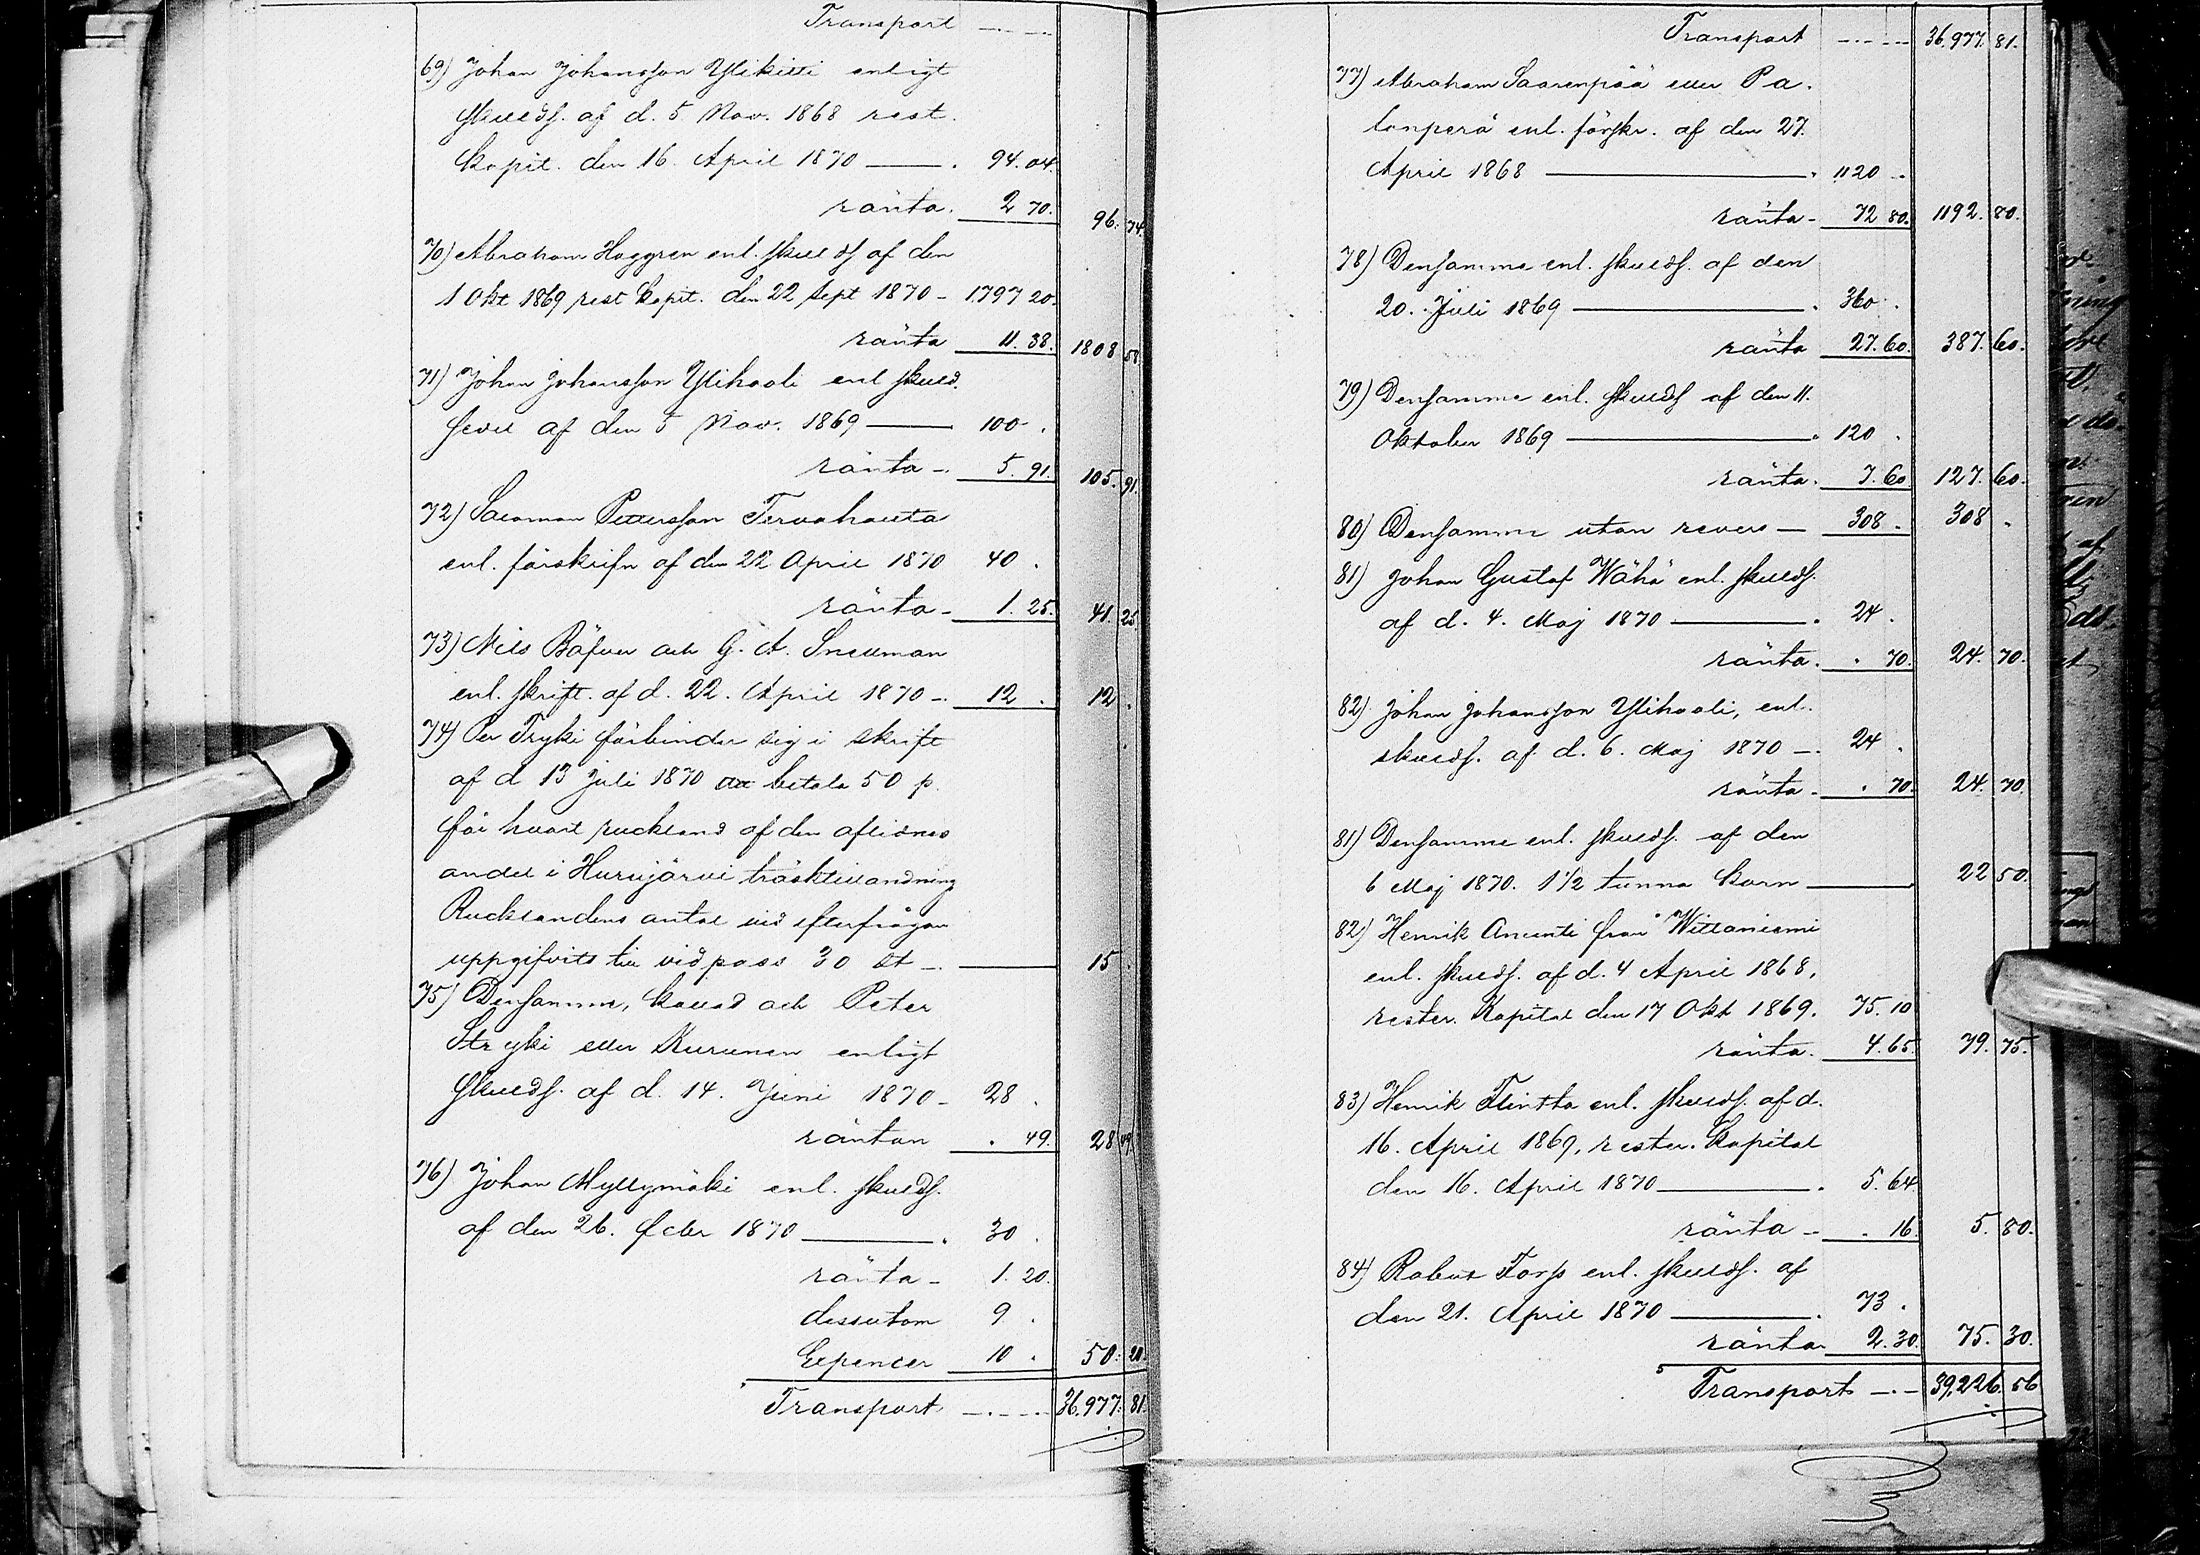 Transport
69) Johan Johansson Ylikitti enligt
skulds. af d. 5 Nov. 1868 rest.
kapit. den 16. April 1870 94.04.
ränta. 2 70. 96. 74.
70) Abraham Haggren enl. skulds af den
1 Okt 1869 rest kapit. den 22 Sept 1870 - 1797 20.
ränta 11. 38. 1808 58
71) Johan Johansson Ylihooli enl skuld.
sedel af den 5 Nov. 1869 100.
ränta - 5. 91. 105. 91.
72) Salomon Pettersson Tervahauta
enl. förskrifn af den 22 April 1870 40.
ränta - 1. 25. 41. 25
73) Nils Båfver och G. A. Snellman
enl. skrift. af d. 22. April 1870 - 12. 12.
74) Per Tryki förbinder sig i skrift
af d 13 Juli 1870 att betala 50 p.
för hvart ruckland af den aflidnes
andel i Hurujärvi träsktillandning
Rucklandens antal vid efterfrågan
uppgifvits till vid pass 30 st - 15.
75) Densamme, Kauad och Peter
Stryki eller Kurunen enligt
skulds. af d. 14. Juni 1870 - 28.
räntan . 49. 28 49
76) Johan Myllymäki enl. skulds.
af den 26. Feber 1870 30.
ränta - 1. 20.
dessutom 9.
Expencer 10. 50. 20.
Transport 36,977. 81.
Transport 36,977. 81.
77) Abraham Saarenpää eller Pa.
lonperä enl. förskr. af den 27.
April 1868 1120.
ränta - 72 80. 1192. 80.
78) Densamme enl. skulds. af den
20. Juli 1869 360.
ränta 27. 60. 387. 60.
79) Densamme enl. skulds af den 11.
Oktober 1869 120.
ränta. 7. 60 127. 60.
80) Densamme utan revers — 308. 308.
81) Johan Gustaf Wähä enl. skulds.
af d. 4. Maj 1870 24.
ränta. . 70. 24. 70.
82) Johan Johansson Ylihooli, enl.
skulds. af d. 6. Maj 1870 -. 24.
ränta - . 70. 24. 70.
81) Densamme enl. skulds. af den
6 Maj 1870. 1 1/2 tunna korn 22 50.
82) Henrik Anunti från Wittaniemi
enl. skulds. af d. 4 April 1868,
rester. Kapital den 17 Okt 1869. 75. 10
ränta. 4. 65. 79. 75.
83) Henrik Flintta enl. skulds. af d.
16. April 1869, rester. Kapital
den 16. April 1870 5. 64.
ränta - . 16. 5. 80.
84) Robert Forss enl. skulds. af
den 21. April 1870 73.
ränta 2. 30. 75. 30.
Transport 39,226. 56